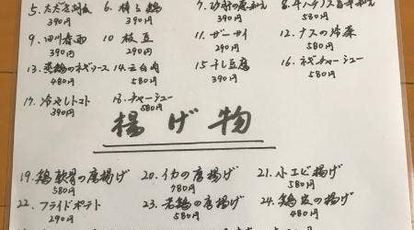 390円 390円 390円 580円
9. 四川春雨 10. 枝豆 11. ザーサイ 12. ナスの冷菜
390円 390円 290円 580円
13. 蒸鶏のネギソース 14. 雲白肉 15. 干し豆腐 16. ネギチャーシュー
480円 580円 390円 580円
17. 冷やしトマト 18. チャーシュー
390円 580円
揚げ物
19. 鶏軟骨の唐揚げ 20. イカの唐揚げ 21. 小エビ揚げ
580円 780円 580円
22. フライドポテト 23. 若鶏の唐揚げ 24. 鶏皮の揚げ
290円 580円 480円